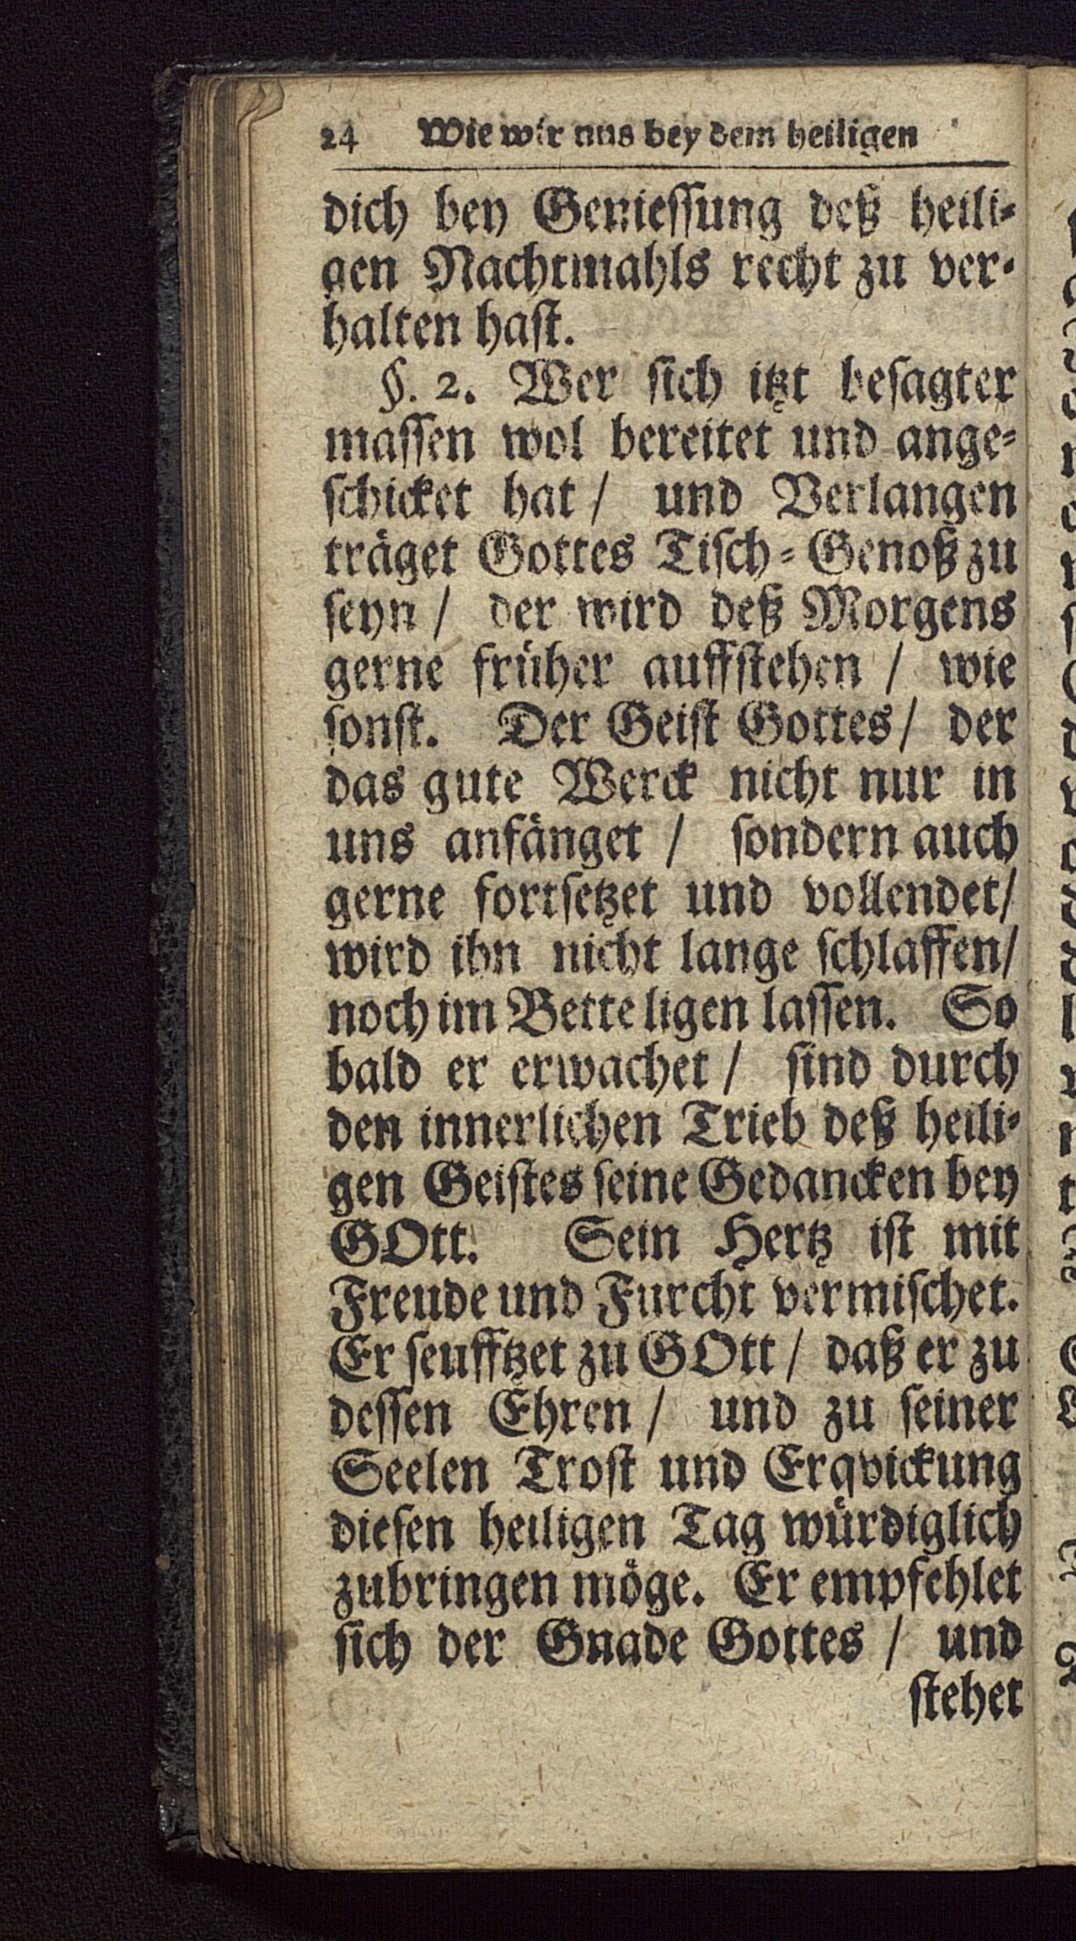 24 Wie wir uns bey dem heiligen
dich bey Geniessung deß heili-
gen Nachtmahls recht zu ver-
halten hast.
§. 2. Wer sich itzt besagter
massen wol bereitet und ange-
schicket hat / und Verlangen
träget Gottes Tisch-Genoß zu
seyn / der wird deß Morgens
gerne früher auffstehen / wie
sonst. Der Geist Gottes / der
das gute Werck nicht nur in
uns anfänget / sondern auch
gerne fortsetzet und vollendet /
wird ihn nicht lange schlaffen /
noch im Bette ligen lassen. So
bald er erwachet / sind durch
den innerlichen Trieb deß heili-
gen Geistes seine Gedancken bey
GOtt. Sein Hertz ist mit
Freude und Furcht vermischet.
Er seufftzet zu GOtt / daß er zu
dessen Ehren / und zu seiner
Seelen Trost und Erqvickung
diesen heiligen Tag würdiglich
zubringen möge. Er empfehlet
sich der Gnade Gottes / und
stehet